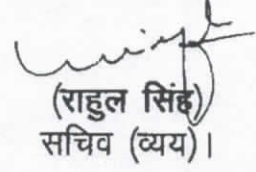 (राहुल सिंह)
सचिव (व्यय)।